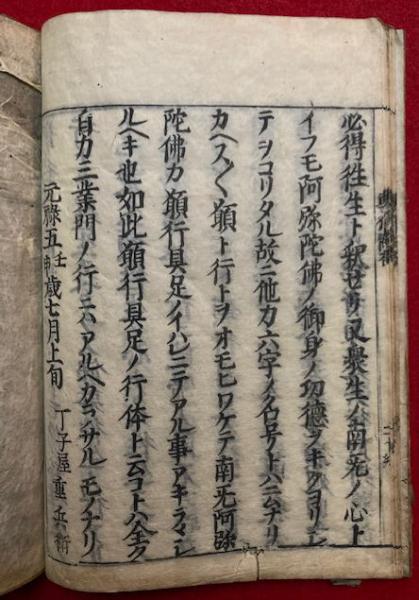 必得徃生ト釈セリ又衆生ノ南无ノ心ト
イフモ阿弥陀佛ノ御身ノ功德ヲキクヨリ
テヲコリタル故ニ他力六字ノ名号トハ云ナリ
カヘス〱願ト行トヲオモヒワケテ南无阿弥
陀佛カ願行具足イハレニテアル事アキラ
ルヘキ也如此願行具足ノ行体ト云コトハ全ク
自力三業門ノ行ニハアルヘカラサルモノナリ
元禄五壬申歳七月上旬 丁子屋重兵衛